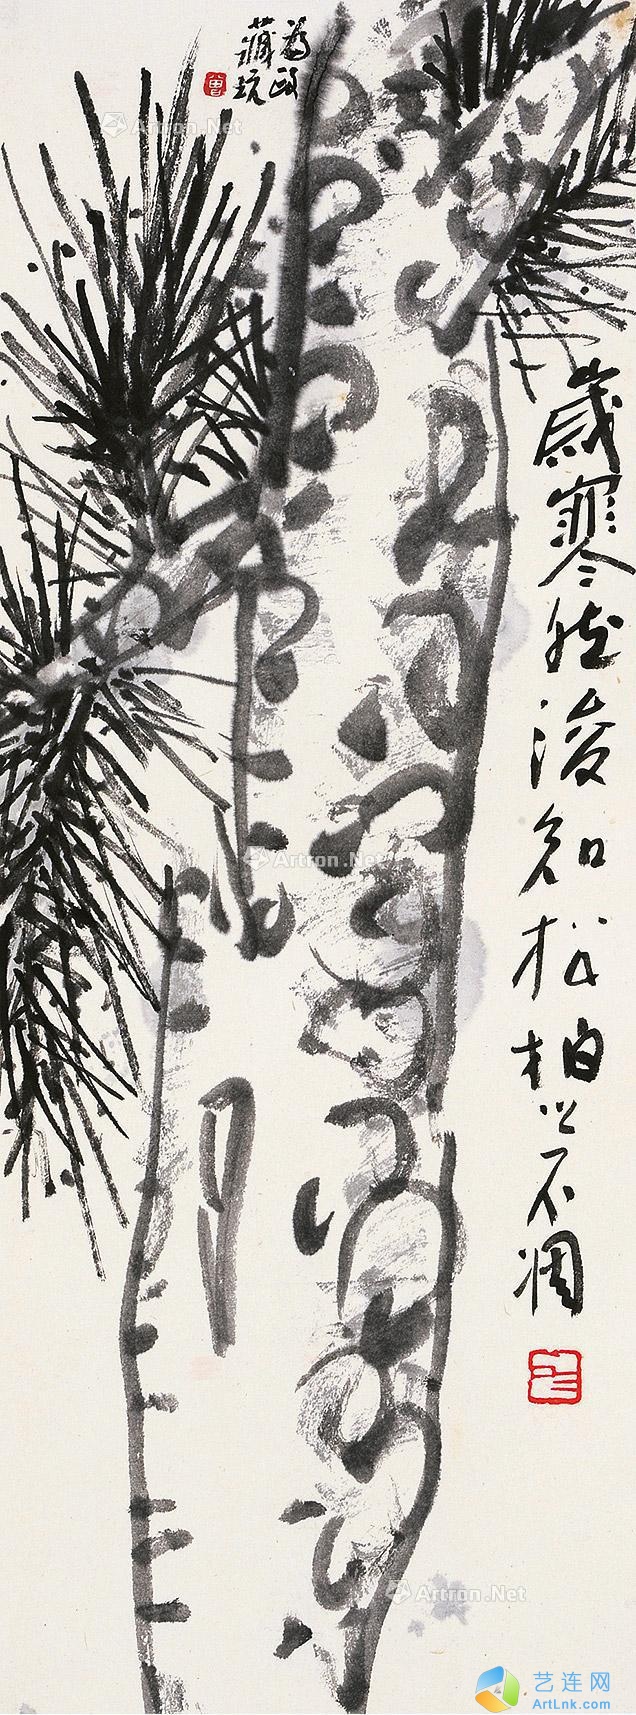 為政
藏玩
曾
歲寒然後知松柏之不凋
Artron.Net
Artron.Net
Artron.Net
Artron.Net
艺连网
ArtLnk.com